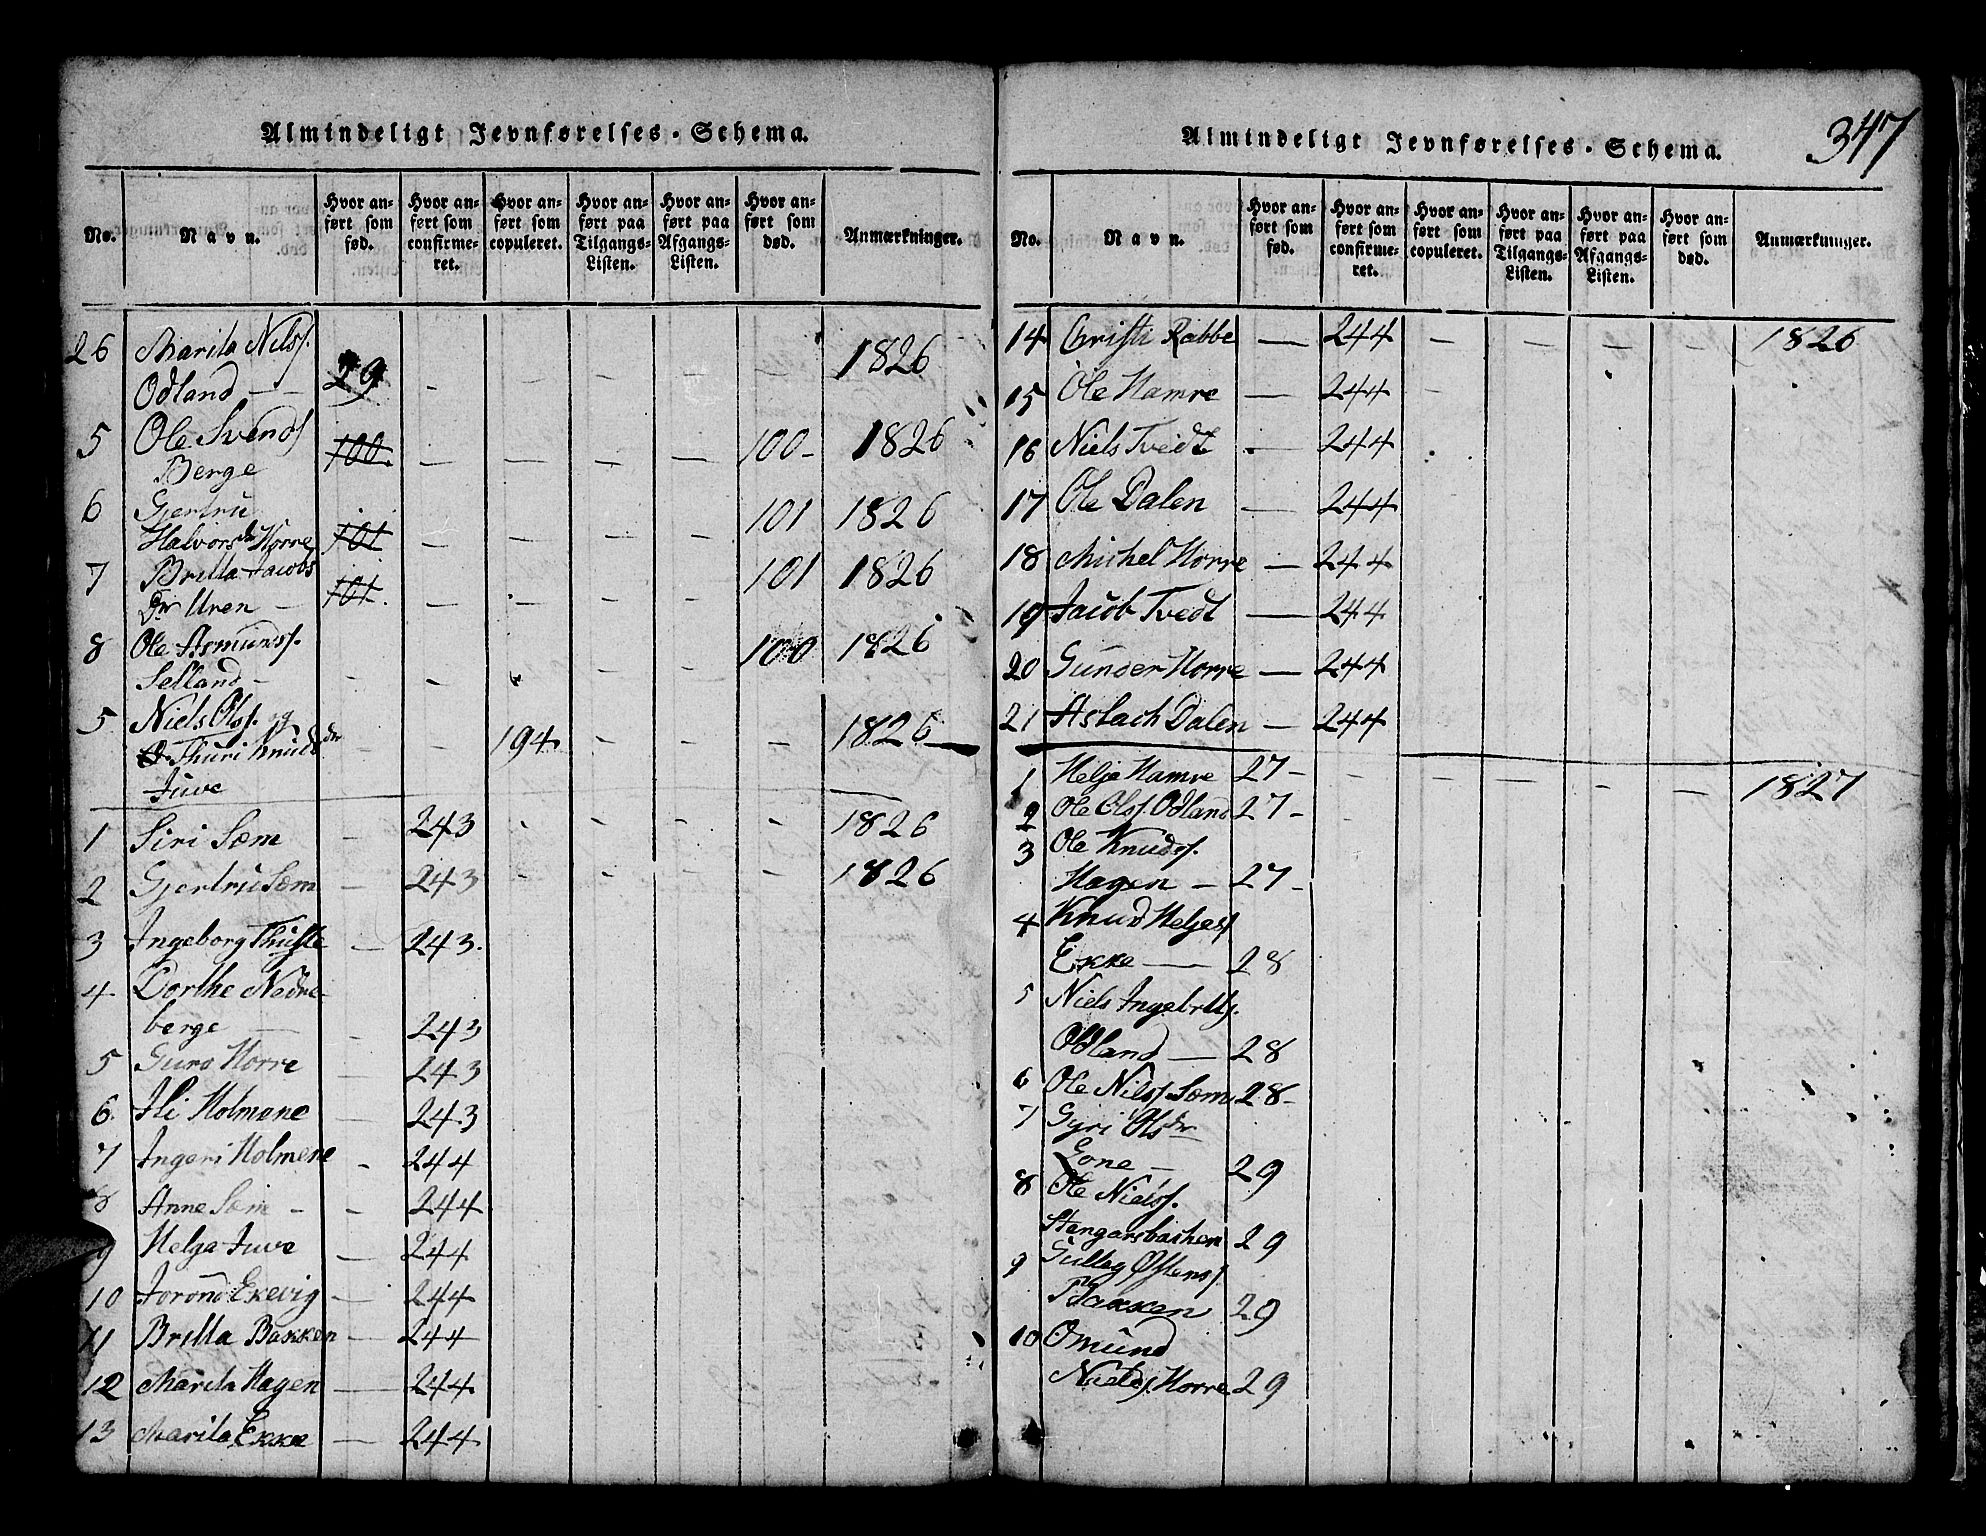 Almindeligt Jevnførelses-Schema.
No. Navn. Hvor anført som fød. Hvor anført som confirmeret. Hvor anført som copuleret. Hvor anført paa Tilgangs-Listen. Hvor anført paa Afgangs-Listen. Hvor anført som død. Anmærkninger.
26 Marita Nilsf. 1826
Odland — 29 - - - - -
5 Ole Svends 1826
Berge 100 — — — — — 100-
6 Gjertru 101 1826
Halvorsdr Horre 101 - - - - -
7 Britta Jacobs 101 1826
Dr Uren — 101 - - - - -
8 Ole Asmunds. 100 1826
Selland - - - - - -
5 Niels Olsf. og 1826
Thuri Knudsdr - - 194 - - -
Juve
1 Siri Sæm - 243 - - - - 1826
2 Gjertru Sæm - 243 - - - - 1826
3 Ingeborg Thuste - 243.
4 Dorthe Nedre-
berge - 243
5 Guro Horre - 243
6. Ili Holmene - 243
7 Ingeri Holmene - 244
8 Anne Sæm - - 244
9 Helga Juve - 244
10 Jorond Exevig - 244
11 Britta Bakken - 244
12 Marita Hagen — 244
13 Marita Exxe — 244
Almindeligt Jevnførelses-Schema.
347
No. Navn. Hvor anført som fød. Hvor anført som confirmeret. Hvor anført som copuleret. Hvor anført paa Tilgangs-Listen. Hvor anført paa Afgangs-Listen. Hvor anført som død. Anmærkninger.
14 Christi Rabbe — 244 - - - - 1826
15 Ole Hamre — 244 -
16 Niels Tvedt — 244
17 Ole Dalen — 244
18 Michel Horre — 244
19 Jacob Tvedt — 244
20 Gunder Horre — 244
21 Aslach Dalen — 244
1 Helje Hamre 27- - - - - - 1827
2 Ole Olsf. Odland 27-
3 Ole Knudsf.
Hagen — 27-
4 Knud Heljesf
Exxe — 28
5 Niels Ingebretsf.
Odland — 28
6 Ole Nilsf. Sæm 28-
7 Gyri Olsdr
Gone — 29
8 Ole Nielsf.
Stangarsbachen 29
9 Gulleg Østensf.
Flaxxen 29
10 Omund
Nielsf. Horre 29